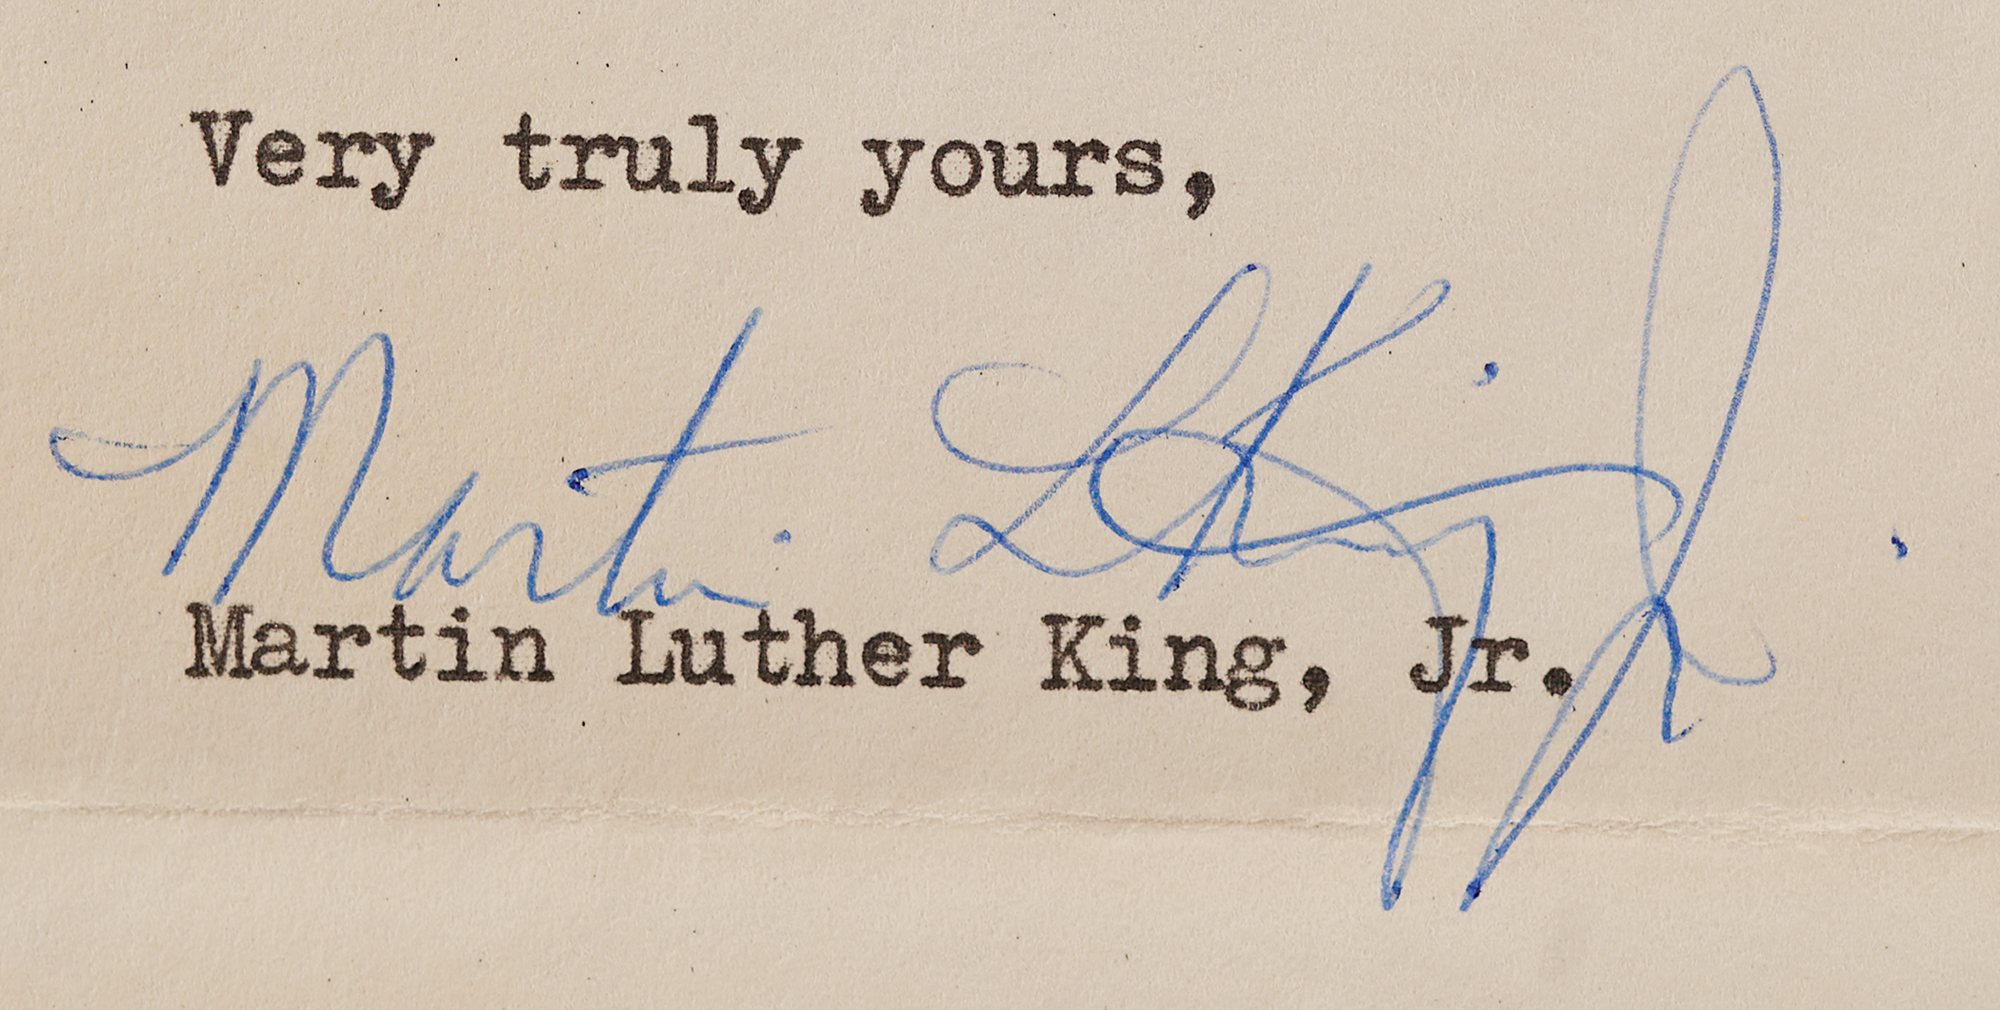 Very truly yours,
Martin L King Jr.
Martin Luther King, Jr.